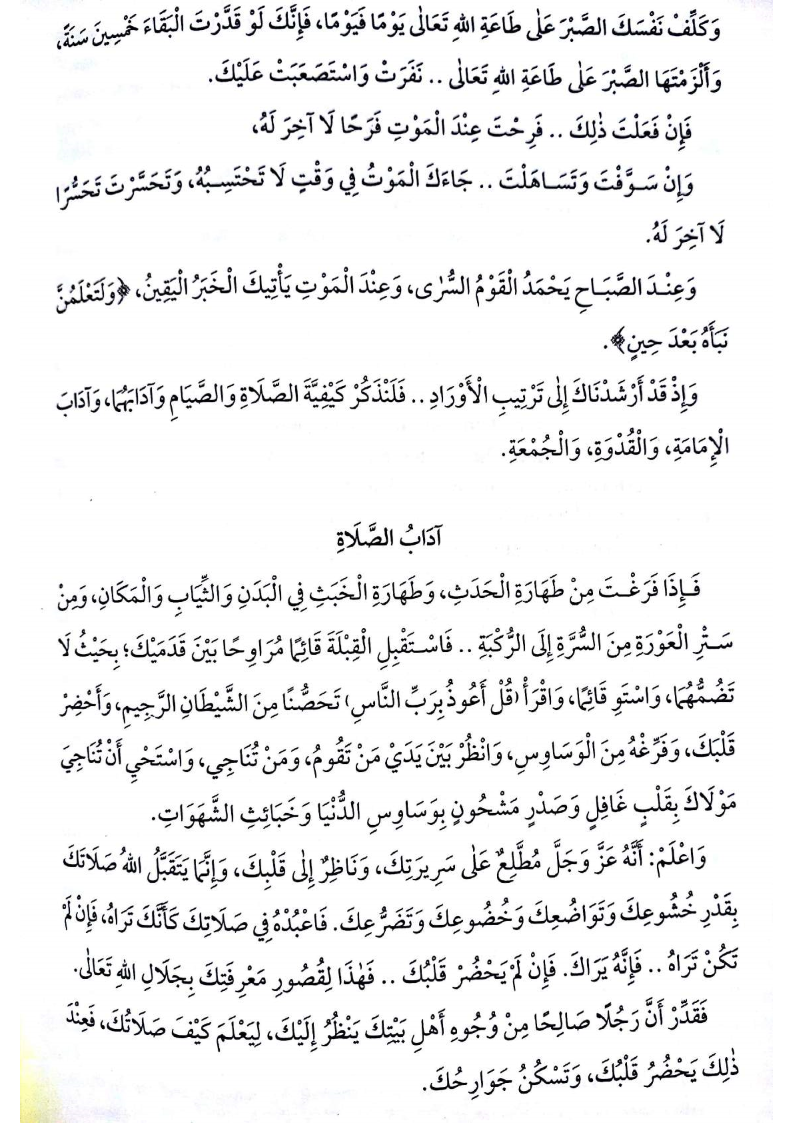 وَكَلِّفْ نَفْسَكَ الصَّبْرَ عَلَى طَاعَةِ اللهِ تَعَالَى يَوْمًا فَيَوْمًا، فَإِنَّكَ لَوْ قَدَّرْتَ الْبَقَاءَ خَمْسِينَ سَنَةً،
وَأَلْزَمْتَهَا الصَّبْرَ عَلَى طَاعَةِ اللهِ تَعَالَى .. نَفَرَتْ وَاسْتَصْعَبَتْ عَلَيْكَ.
فَإِنْ فَعَلْتَ ذٰلِكَ .. فَرِحْتَ عِنْدَ الْمَوْتِ فَرَحًا لَا آخِرَ لَهُ،
وَإِنْ سَوَّفْتَ وَتَسَاهَلْتَ .. جَاءَكَ الْمَوْتُ فِي وَقْتٍ لَا تَحْتَسِبُهُ، وَتَحَسَّرْتَ تَحَسُّرًا
لَا آخِرَ لَهُ.
وَعِنْدَ الصَّبَاحِ يَحْمَدُ الْقَوْمُ السُّرٰى، وَعِنْدَ الْمَوْتِ يَأْتِيكَ الْخَبَرُ الْيَقِينُ، ﴿وَلَتَعْلَمُنَّ
نَبَأَهُ بَعْدَ حِينٍ﴾.
وَإِذْ قَدْ أَرْشَدْنَاكَ إِلَى تَرْتِيبِ الْأَوْرَادِ .. فَلْنَذْكُرْ كَيْفِيَّةَ الصَّلَاةِ وَالصِّيَامِ وَآدَابَهُمَا، وَآدَابَ
الْإِمَامَةِ، وَالْقُدْوَةِ، وَالْجُمْعَةِ.
آدَابُ الصَّلَاةِ
فَإِذَا فَرَغْتَ مِنْ طَهَارَةِ الْحَدَثِ، وَطَهَارَةِ الْخَبَثِ فِي الْبَدَنِ وَالثِّيَابِ وَالْمَكَانِ، وَمِنْ
سَتْرِ الْعَوْرَةِ مِنَ السُّرَّةِ إِلَى الرُّكْبَةِ .. فَاسْتَقْبِلِ الْقِبْلَةَ قَائِمًا مُرَاوِحًا بَيْنَ قَدَمَيْكَ؛ بِحَيْثُ لَا
تَضُمُّهُمَا، وَاسْتَوِ قَائِمًا، وَاقْرَأْ (قُلْ أَعُوذُ بِرَبِّ النَّاسِ) تَحَصُّنًا مِنَ الشَّيْطَانِ الرَّجِيمِ، وَأَحْضِرْ
قَلْبَكَ، وَفَرِّغْهُ مِنَ الْوَسَاوِسِ، وَانْظُرْ بَيْنَ يَدَيْ مَنْ تَقُومُ، وَمَنْ تُنَاجِي، وَاسْتَحْيِ أَنْ تُنَاجِيَ
مَوْلَاكَ بِقَلْبٍ غَافِلٍ وَصَدْرٍ مَشْحُونٍ بِوَسَاوِسِ الدُّنْيَا وَخَبَائِثِ الشَّهَوَاتِ.
وَاعْلَمْ: أَنَّهُ عَزَّ وَجَلَّ مُطَّلِعٌ عَلَى سَرِيرَتِكَ، وَنَاظِرٌ إِلَى قَلْبِكَ، وَإِنَّمَا يَتَقَبَّلُ اللهُ صَلَاتَكَ
بِقَدْرِ خُشُوعِكَ وَتَوَاضُعِكَ وَخُضُوعِكَ وَتَضَرُّعِكَ. فَاعْبُدْهُ فِي صَلَاتِكَ كَأَنَّكَ تَرَاهُ، فَإِنْ لَمْ
تَكُنْ تَرَاهُ .. فَإِنَّهُ يَرَاكَ. فَإِنْ لَمْ يَحْضُرْ قَلْبُكَ .. فَهٰذَا لِقُصُورِ مَعْرِفَتِكَ بِجَلَالِ اللهِ تَعَالَى.
فَقَدِّرْ أَنَّ رَجُلًا صَالِحًا مِنْ وُجُوهِ أَهْلِ بَيْتِكَ يَنْظُرُ إِلَيْكَ، لِيَعْلَمَ كَيْفَ صَلَاتُكَ، فَعِنْدَ
ذٰلِكَ يَحْضُرُ قَلْبُكَ، وَتَسْكُنُ جَوَارِحُكَ.